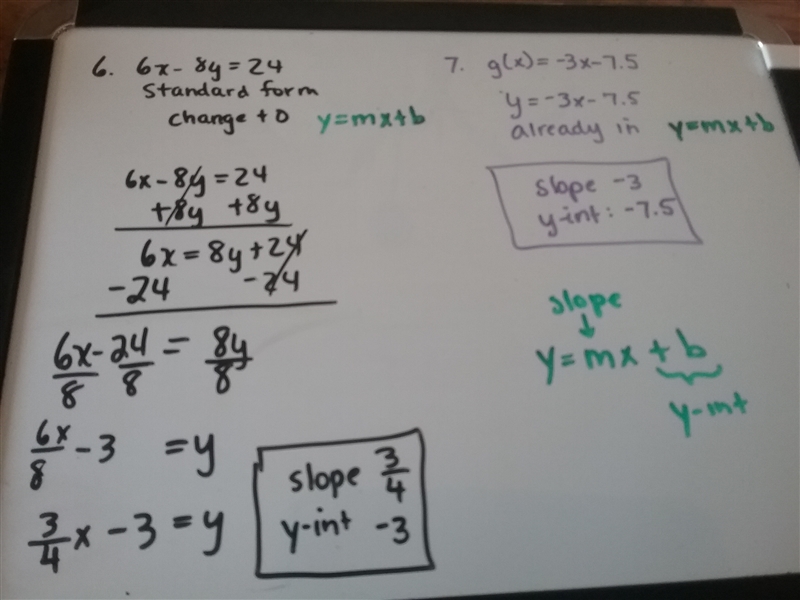 6. 6x - 8y = 24
Standard form
change to y=mx+b
6x - 8y = 24
+8y +8y
6x = 8y + 24
-24 -24
6x/8 - 24/8 = 8y/8
6x/8 - 3 = y
3/4 x - 3 = y
slope 3/4
y-int -3
7. g(x) = -3x - 7.5
y = -3x - 7.5
already in y=mx+b
slope -3
y-int: -7.5
slope
↓
y = mx + b
y-int